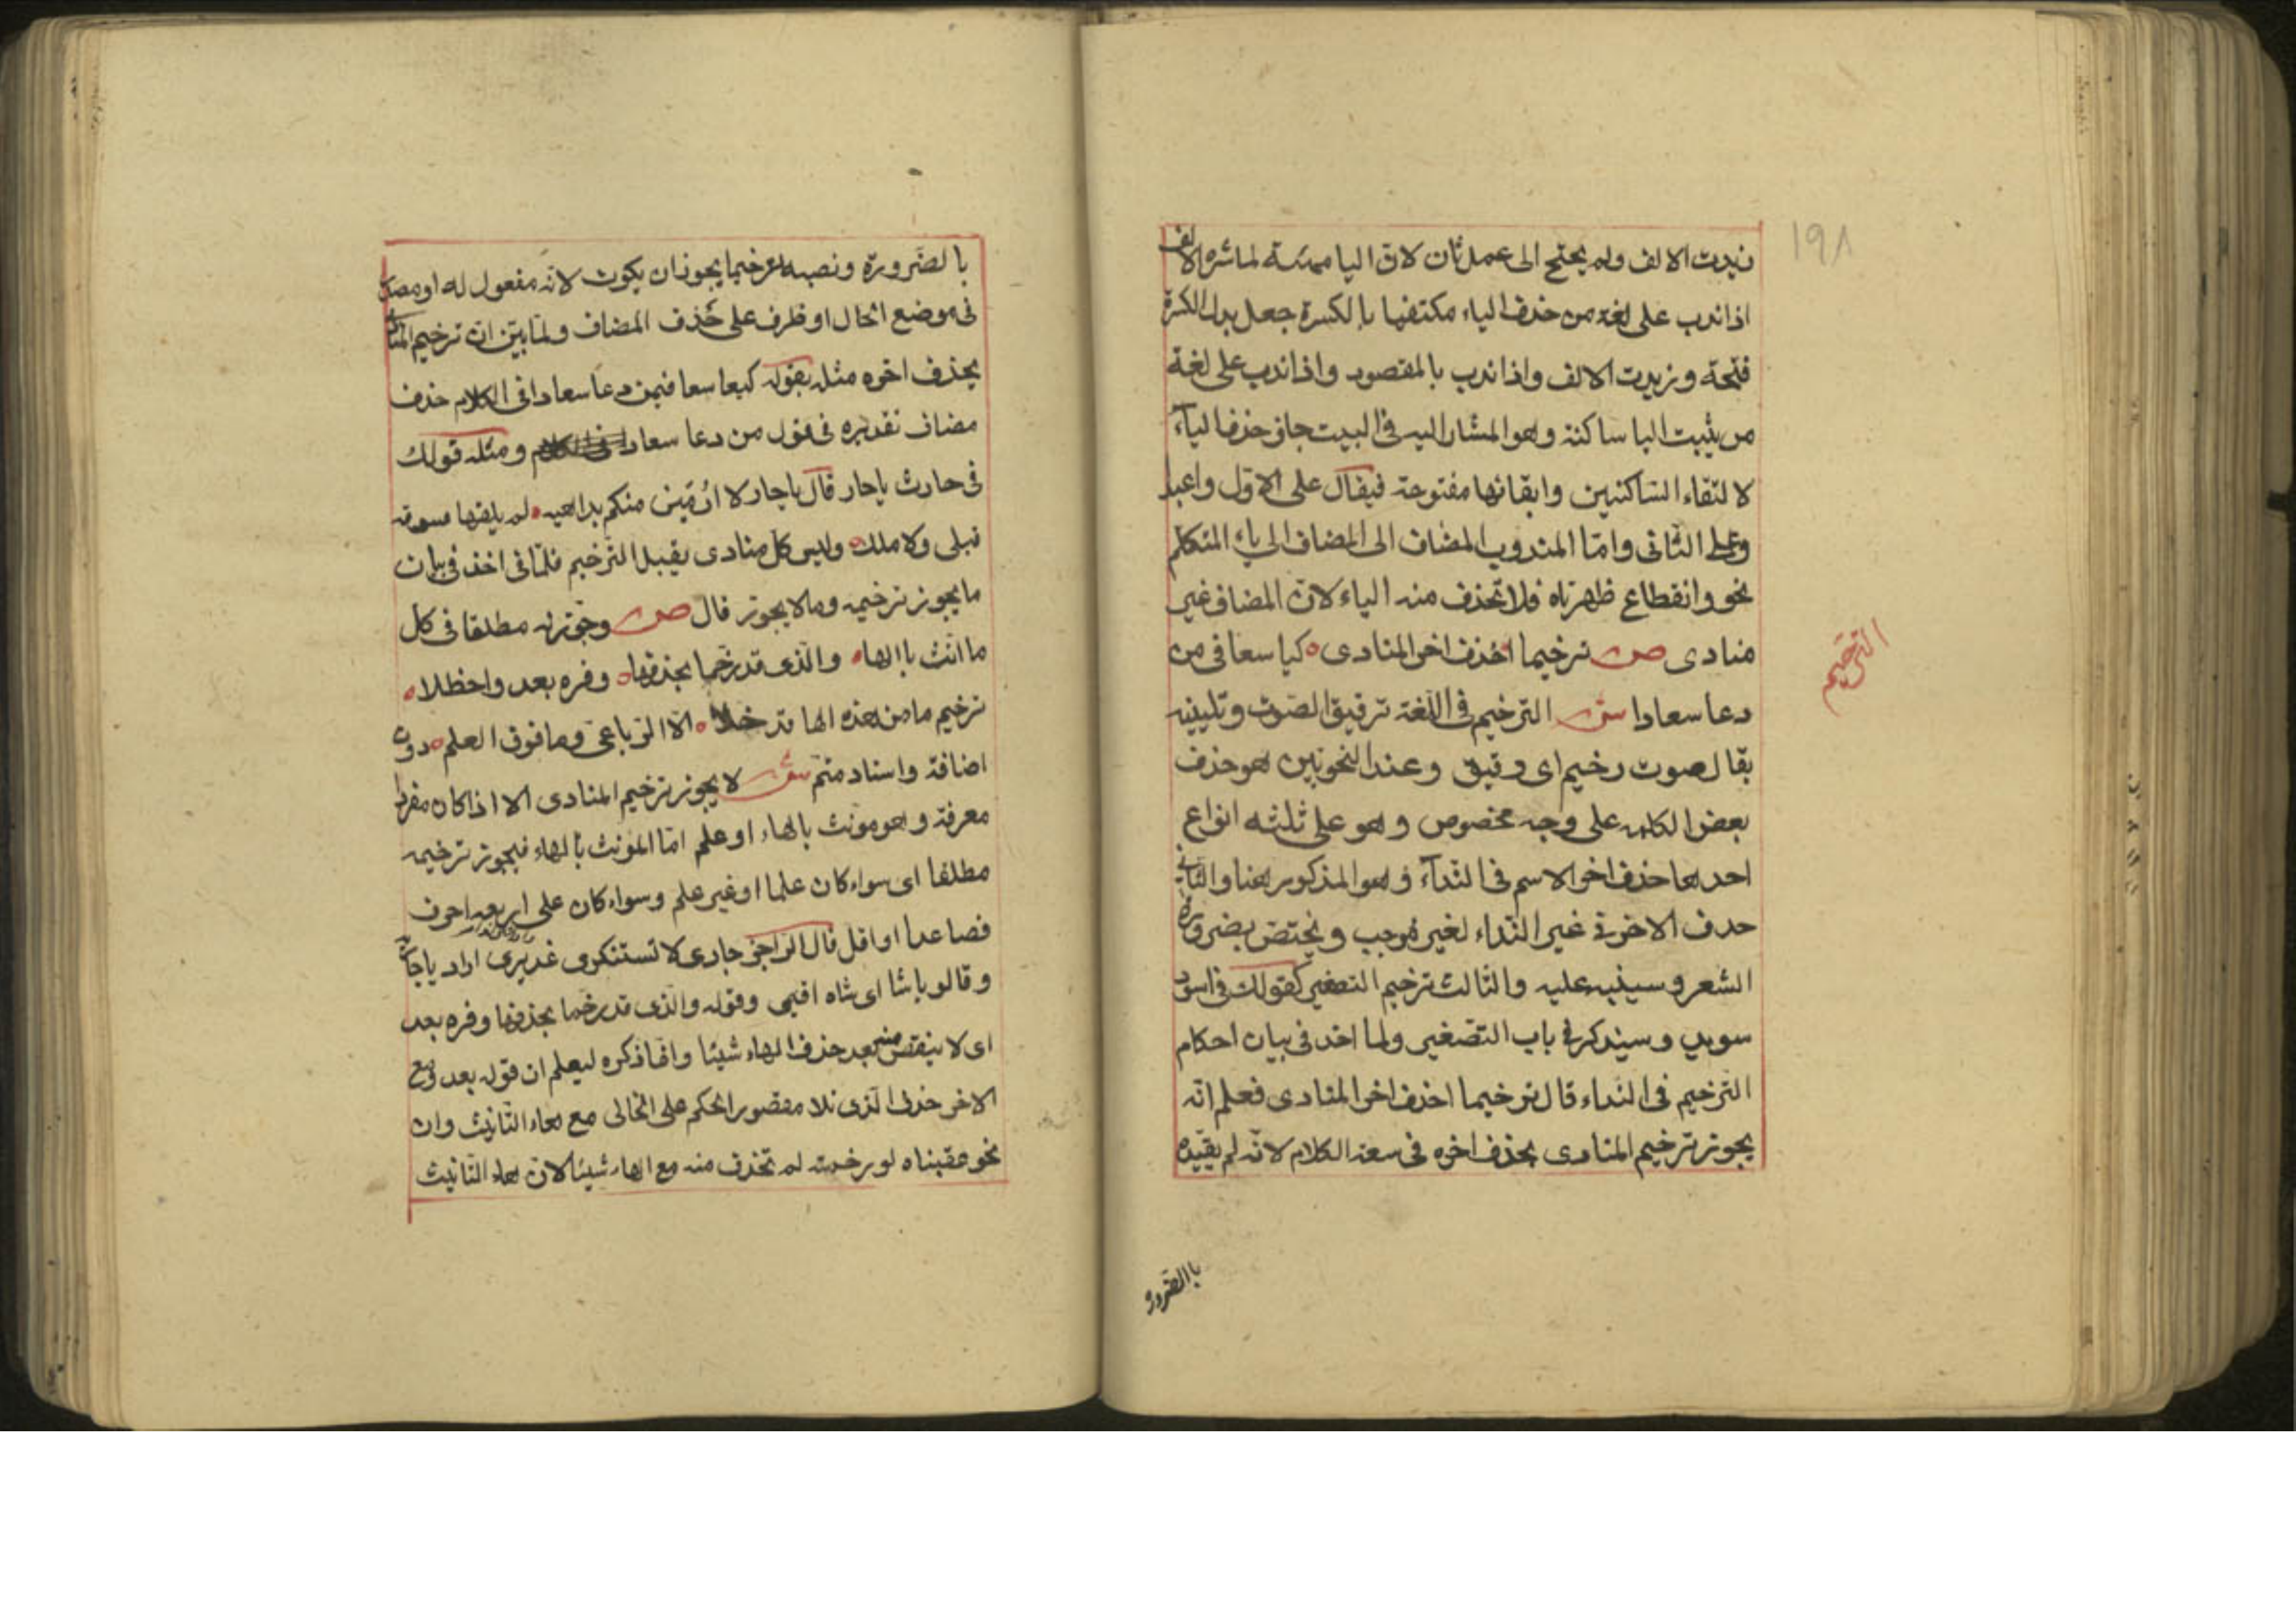 ١٩٨
زيدت الالف ولم يحتج الى عمل ثان لان اليا مهيئة لمباشرة الالف
اذا ندب على لغة من حذف الياء مكتفيا بالكسرة جعل بدل الكسرة
فتحة وزيدت الالف واذا ندب بالمقصود واذا ندب على لغة
من يثبت اليا ساكنة وهو المشار اليه فى البيت جاز حذف الياء
لالتقاء الساكنين وابقائها مفتوحة فيقال على الاول واعبدا
وعلى الثانى واما المندوب المضاف الى المضاف الى ياء المتكلم
نحو وانقطاع ظهرتاه فلا تحذف منه الياء لان المضاف غير
منادى ص ترخيما احذف اخر المنادى كيا سعا فى من
دعا سعادا ش الترخيم فى اللغة ترقيق الصوت وتليينه
يقال صوت رخيم اى رقيق وعند النحويين هو حذف
بعض الكلمه على وجه مخصوص وهو على ثلثه انواع
احدها حذف اخر الاسم فى الندآء وهو المذكور هنا والثانى
حدف الاخر فى غير النداء لغير موجب ويختص بضرورة
الشعر وسينبه عليه والثالث ترخيم التصغير كقولك فى اسود
سويد وسيذكر فى باب التصغير ولما اخذ فى بيان احكام
الترخيم فى النداء قال ترخيما احذف اخر المنادى فعلم انه
يجوز ترخيم المنادى بحذف اخره فى سعة الكلام لانه لم يقيده
الترخيم
باالضرورة
بالضرورة ونصبه ترخيما يجوز ان يكون لانه مفعول له او مصدر
فى موضع الحال او ظرف على حذف المضاف ولما بين ان ترخيم المنادى
بحذف اخره مثله بقوله كيا سعا فيمن دعا سعادا فى الكلام حذف
مضاف تقديره فى قول من دعا سعادا ومثله قولك
فى حارث ياحار قال ياحار لا ارمين منكم بداهيه لم يلقها سوقة
قبلى ولا ملك وليس كل منادى يقبل الترخيم اخذ فى بيان
ما يجوز ترخيمه وما لا يجوز قال ص وجوزنه مطلقا فى كل
ما انث باالهاء والذى قد رخما بحذفها وفره بعد واحظلا
ترخيم ما من هذه الها قد خلا الا الرباعى وما فوق العلم دون
اضافة واسناد متم ش لا يجوز ترخيم المنادى الا اذا كان مفردا
معرفة وهو مونث بالهاء او علم اما المؤنث بالهاء فيجوز ترخيمه
مطلقا اى سواء كان علما او غير علم وسواء كان على اربعه احرف
فصاعدا او اقل قال الراجز جارى لا تستنكرى غديرى اراد ياجارية
وقالو ياشا اى شاه اقيمى وقوله والذى قد رخما بحذفها وفره بعد
اى لا ينقص منه بعد حذف الهاء شيئا وانما ذكره ليعلم ان قوله بعد ومع
الاخر حذف الذى تلا مقصور الحكم على الخالى مع هاء التانيث وان
نحو عقبناه لو رخمته لم تحذف منه مع الهاء شيئا لان هاء التانيث